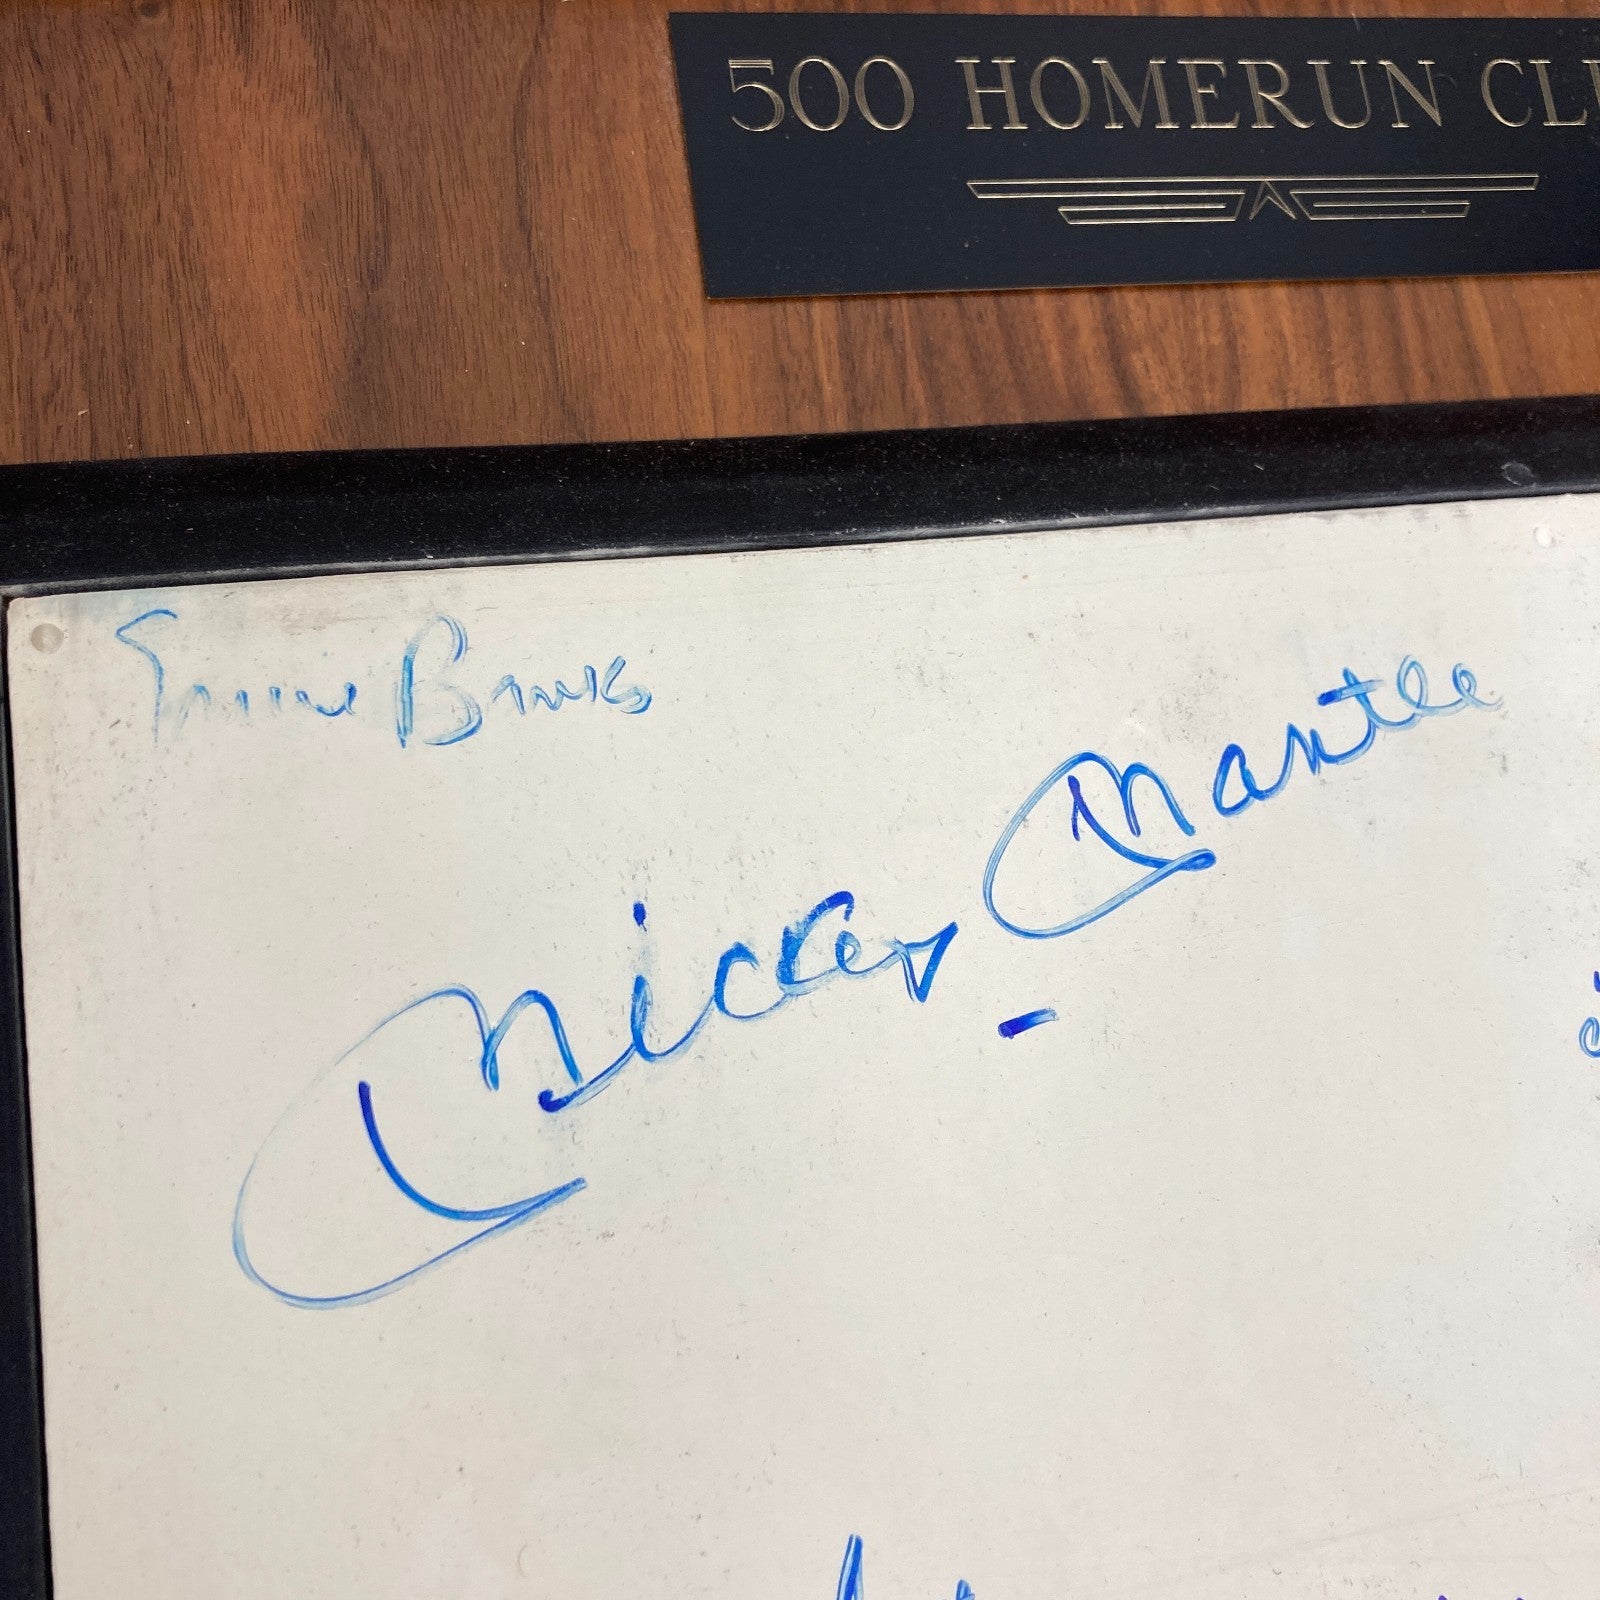 500 HOMERUN CLU
Ernie Banks
Mickey Mantle